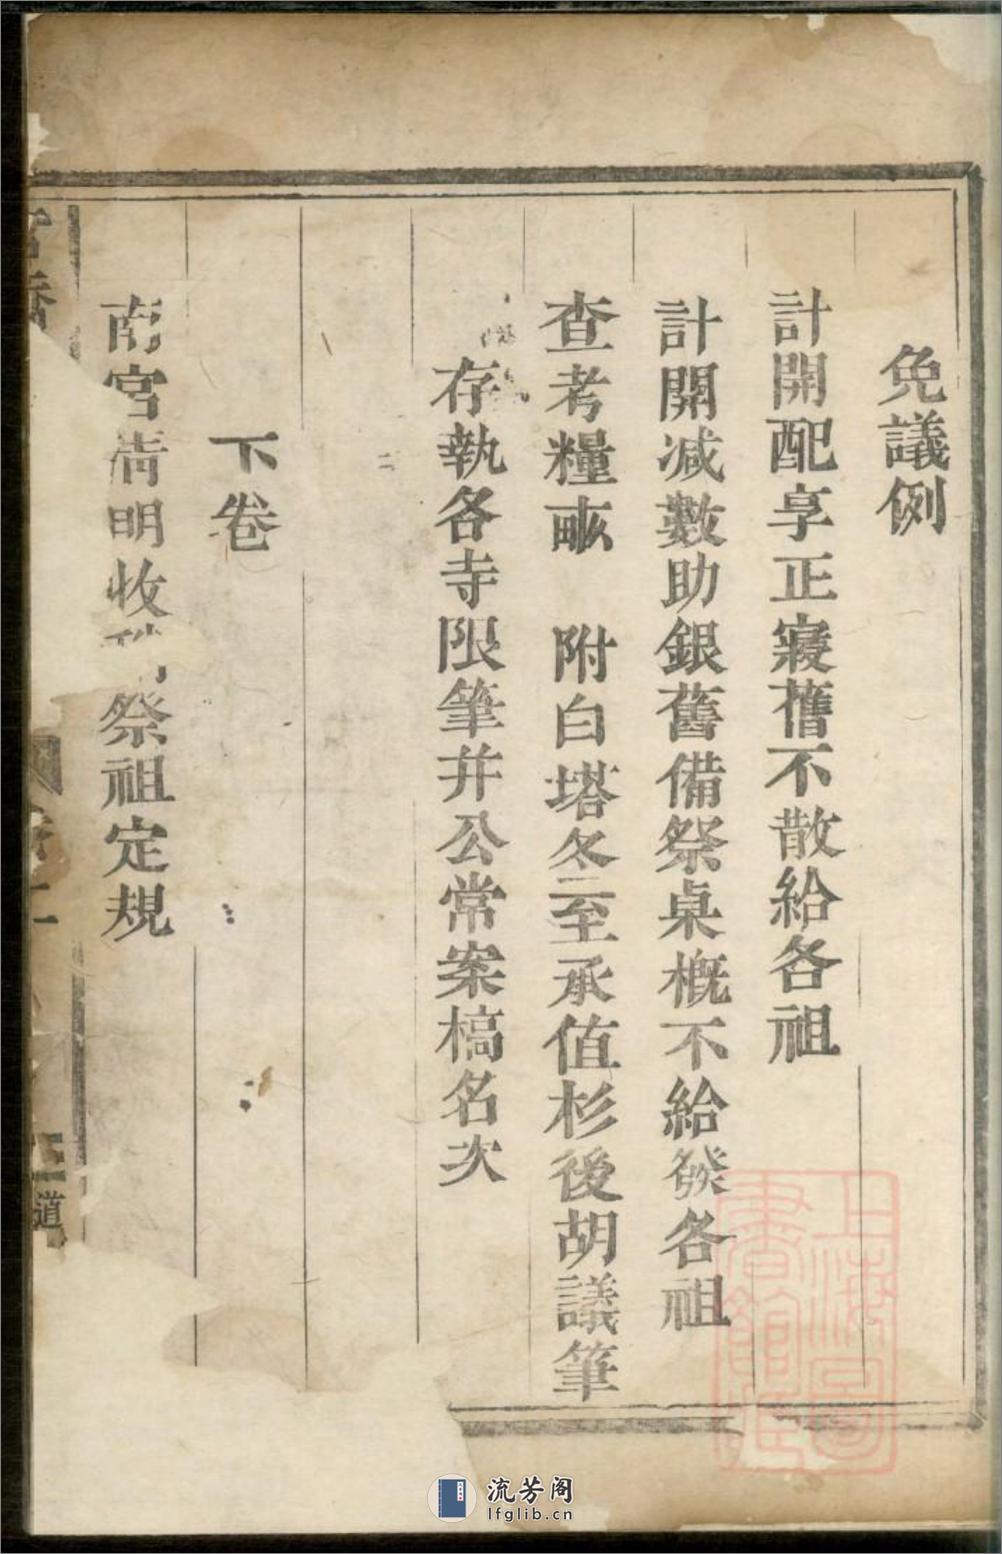 免議例
計開配享正寢舊不散給各祖
計開減數助銀舊備祭桌概不給發各祖
查考糧畝 附白塔冬至承值杉後胡議筆
存執各寺限筆并公常案槁名次
下卷
南宮清明收 祭祖定規
道
上海圖
書館藏
流芳阁
lfglib.cn